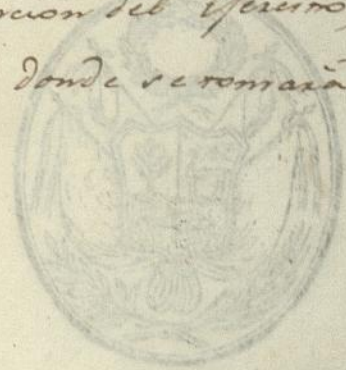 del Ejercito,
donde se tomará